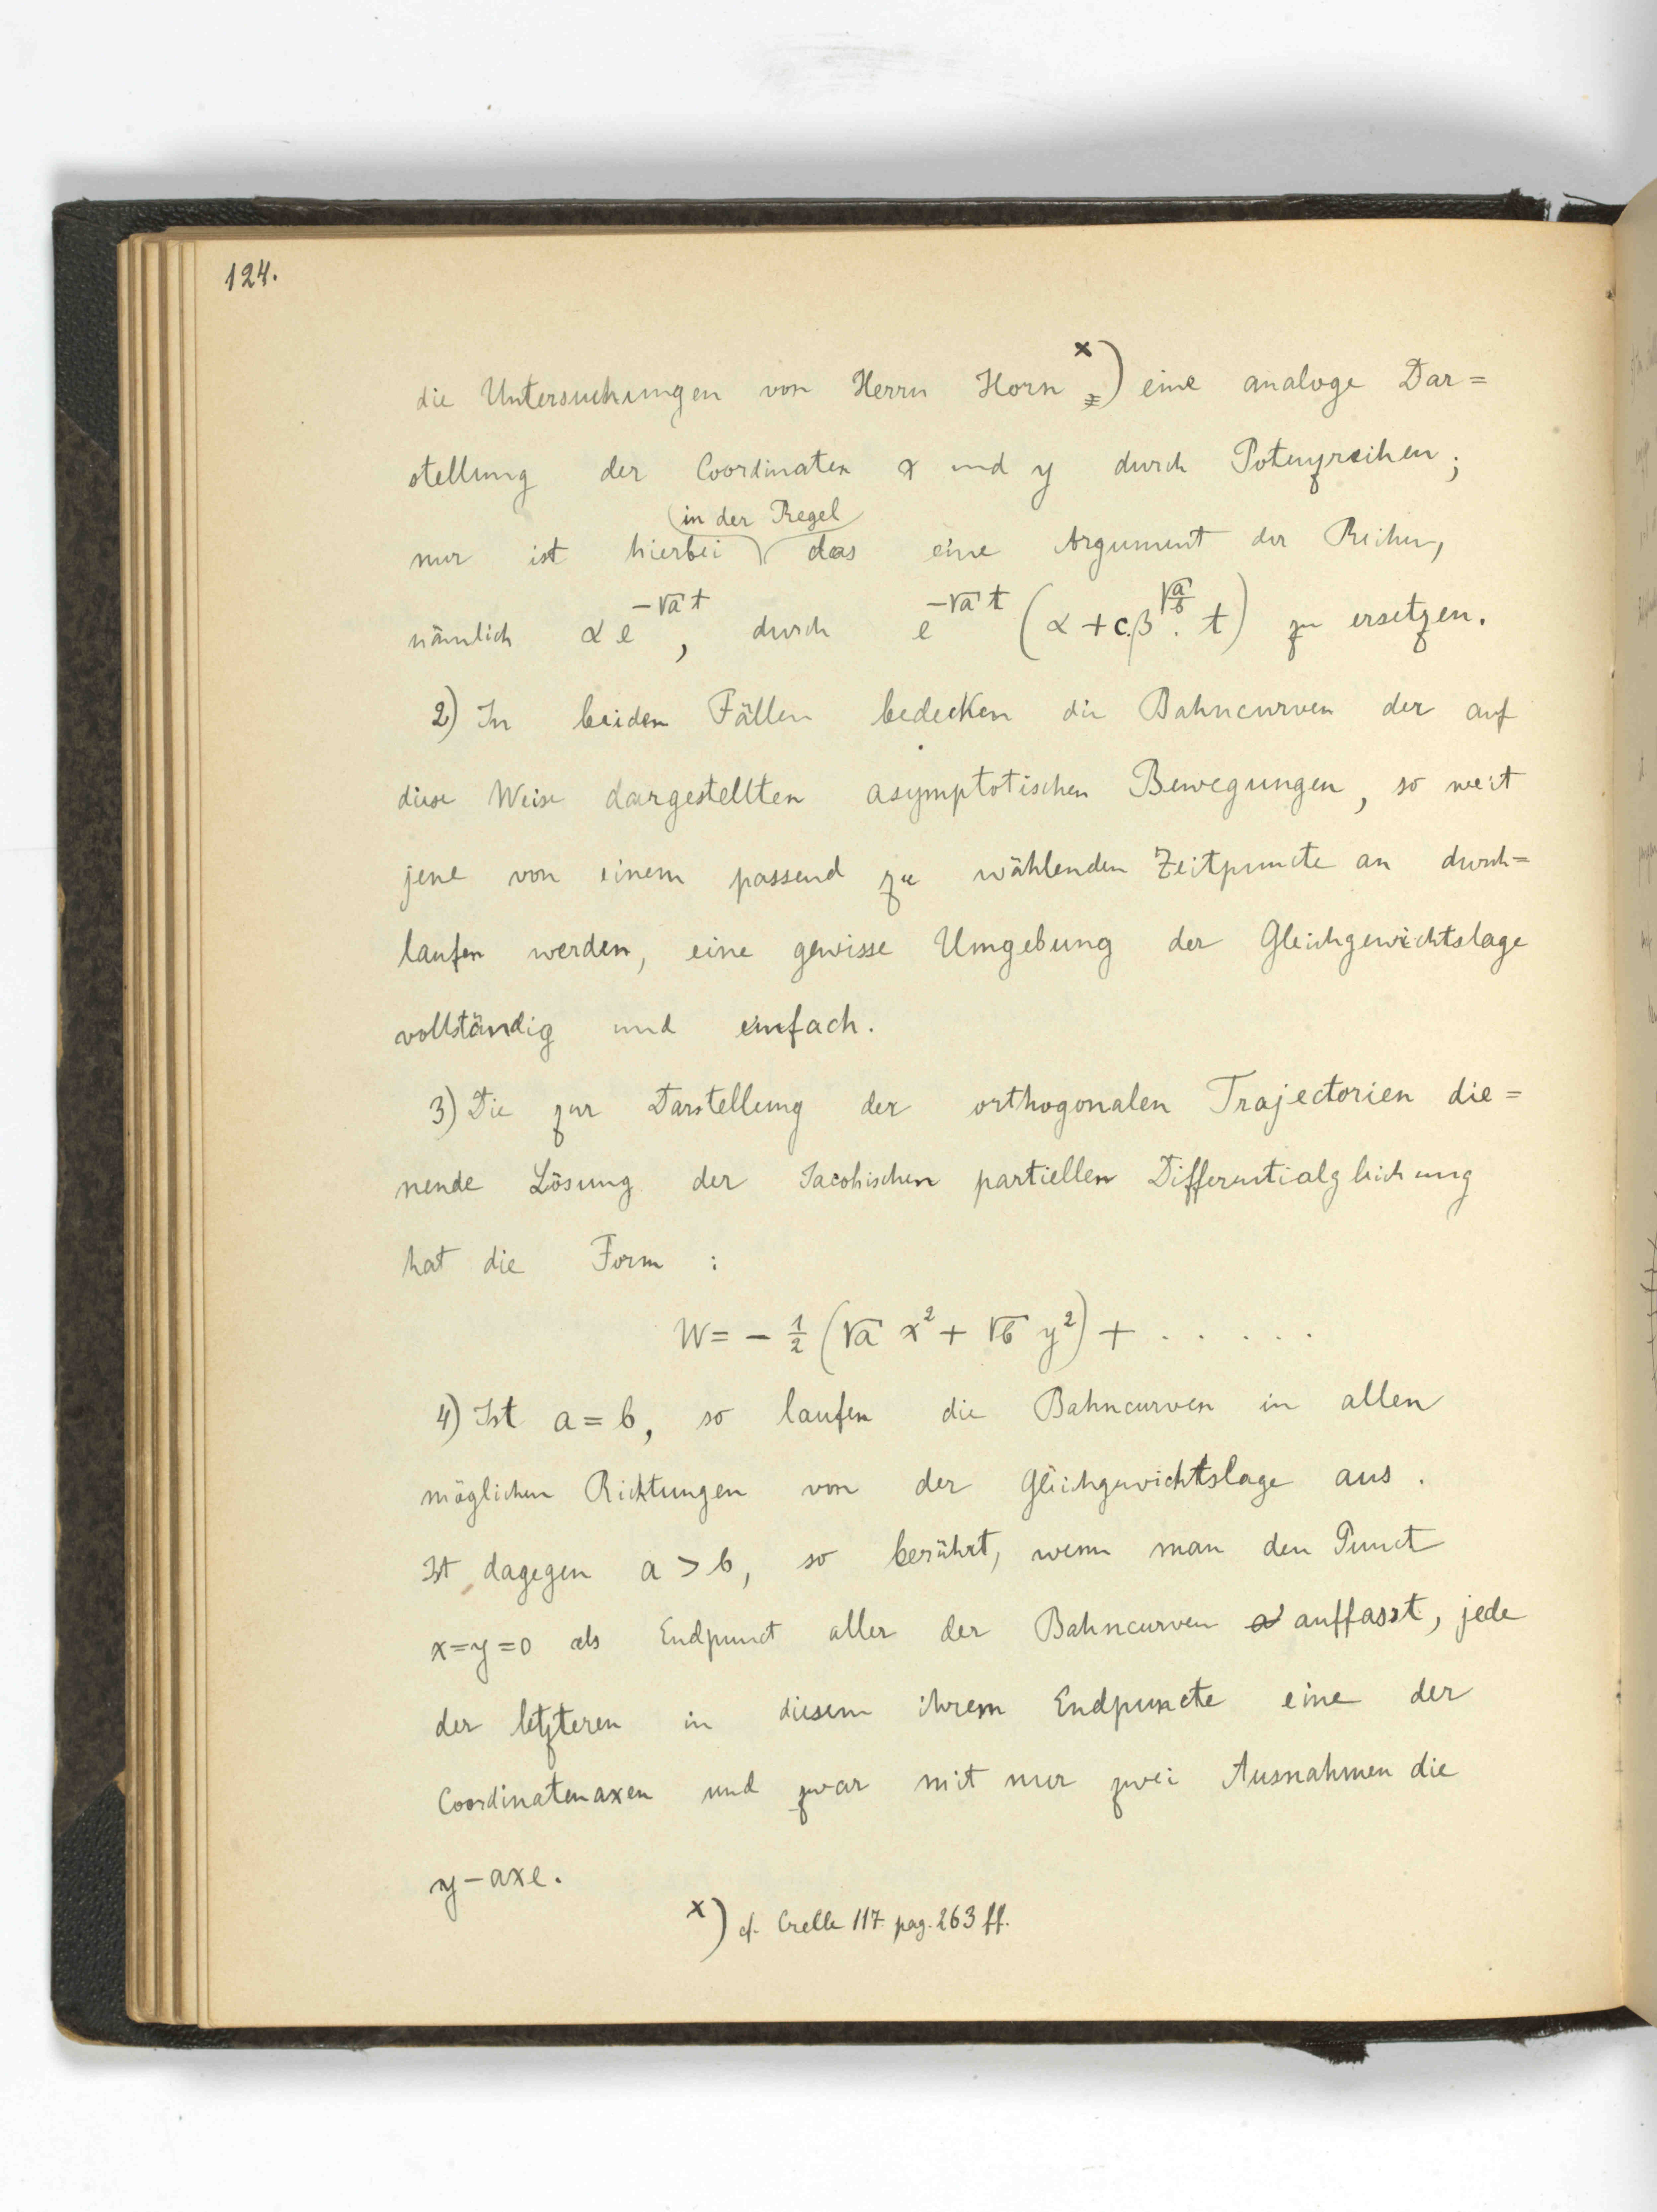 124.
die Untersuchungen von Herrn Horn x) eine analoge Dar=
stellung der Coordinaten x und y durch Potenzreihen;
(in der Regel)
nur ist hierbei das eine Argument der Reihen,
nämlich α e^{-√a t}, durch e^{-√a t} (α + c.β^{√(a/b)} . t) zu ersetzen.
2) In beiden Fällen bedecken die Bahncurven der auf
diese Weise dargestellten asymptotischen Bewegungen, so weit
jene von einem passend zu wählenden Zeitpuncte an durch=
laufen werden, eine gewisse Umgebung der Gleichgewichtslage
vollständig und einfach.
3) Die zur Darstellung der orthogonalen Trajectorien die=
nende Lösung der Jacobischen partiellen Differentialgleichung
hat die Form :
W = - 1/2 (√a x² + √b y²) + . . . . .
4) Ist a = b, so laufen die Bahncurven in allen
möglichen Richtungen von der Gleichgewichtslage aus.
Ist dagegen a > b, so berührt, wenn man den Punct
x=y=0 als Endpunct aller der Bahncurven auffasst, jede
der letzteren in diesem ihrem Endpuncte eine der
Coordinatenaxen und zwar mit nur zwei Ausnahmen die
y-axe.
x) cf. Crelle 117. pag. 263 ff.